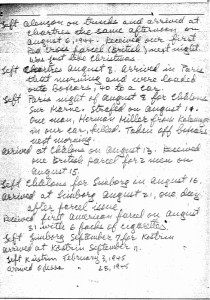 Left Alencon on trucks and arrived at
Chartres the same afternoon, on
August 6, 1944. Received our first
Red Cross parcel (British) next night.
was just like Christmas
Left Chartres August 8. Arrived in Paris
that morning and were loaded
into boxcars, 40 to a car.
Left Paris night of August 8 for Chalons
Sur Marne. Strafed on August 10.
One man, Herman Miller from
in our car, killed. Taken off boxcars
next morning.
Arrived at Chalons on August 13. Received
one British parcel for 2 men on
August 15.
Left Chalons for Limburg on August 16.
Arrived at Limburg August 21, one day
after parcel issue.
Received first American parcel on August
31 with 6 packs of cigarettes.
Left Limburg September 7 for Kustrin
Arrived at Kustrin September 11.
Left Kustrin February 3, 1945
Arrived Odessa 23, 1945